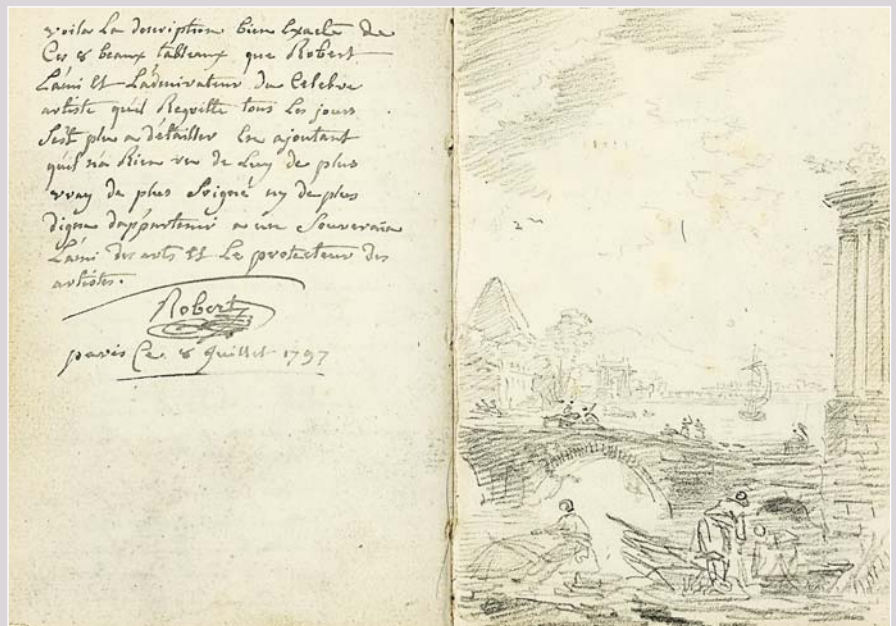 voila La description bien Exacte de
Ces 8 beaux tableaux que Robert
L'ami Et L'admirateur du Celebre
artiste qu'il Regrette tous Les jours
S'est plu a détailler En ajoutant
qu'il n'a Rien vu de Luy de plus
vray de plus Soigné ny de plus
digne d'appartenir a un Souverain
L'ami des arts Et Le protecteur des
artistes.
Robert
paris Ce 8 Juillet 1797